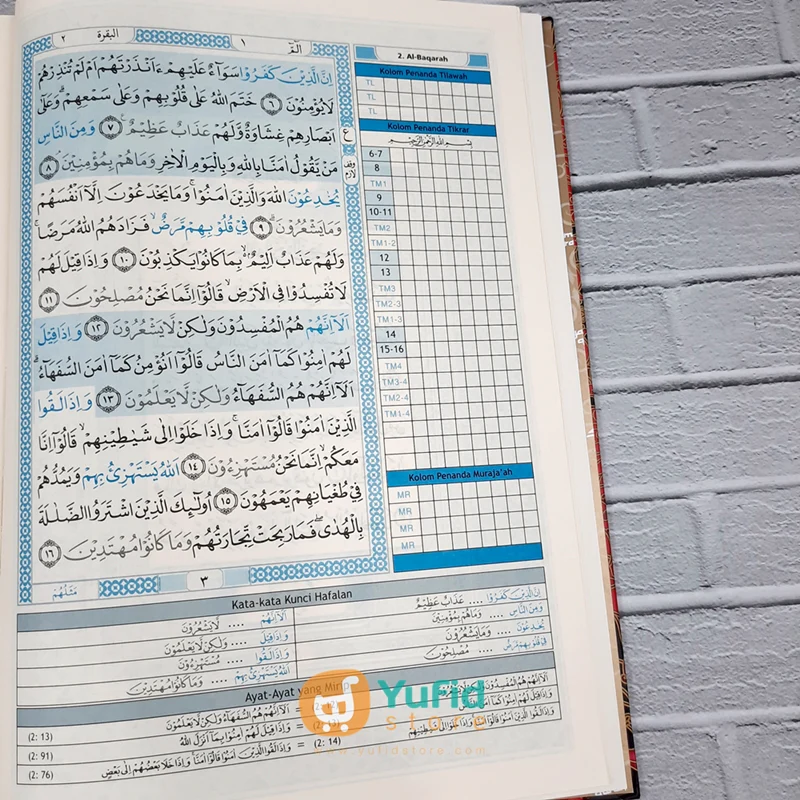 البقرة ٢
١
الۤمّۤ
اِنَّ الَّذِيْنَ كَفَرُوْا سَوَاۤءٌ عَلَيْهِمْ ءَاَنْذَرْتَهُمْ اَمْ لَمْ تُنْذِرْهُمْ
لَا يُؤْمِنُوْنَ ٦ خَتَمَ اللّٰهُ عَلٰى قُلُوْبِهِمْ وَعَلٰى سَمْعِهِمْ ۗ وَعَلٰٓى
اَبْصَارِهِمْ غِشَاوَةٌ وَّلَهُمْ عَذَابٌ عَظِيْمٌ ٧ وَمِنَ النَّاسِ
مَنْ يَّقُوْلُ اٰمَنَّا بِاللّٰهِ وَبِالْيَوْمِ الْاٰخِرِ وَمَا هُمْ بِمُؤْمِنِيْنَ ٨
يُخٰدِعُوْنَ اللّٰهَ وَالَّذِيْنَ اٰمَنُوْا ۚ وَمَا يَخْدَعُوْنَ اِلَّآ اَنْفُسَهُمْ
وَمَا يَشْعُرُوْنَ ٩ فِيْ قُلُوْبِهِمْ مَّرَضٌ ۙ فَزَادَهُمُ اللّٰهُ مَرَضًا ۚ
وَلَهُمْ عَذَابٌ اَلِيْمٌ ۢ ۙ بِمَا كَانُوْا يَكْذِبُوْنَ ١٠ وَاِذَا قِيْلَ لَهُمْ
لَا تُفْسِدُوْا فِى الْاَرْضِ ۙ قَالُوْٓا اِنَّمَا نَحْنُ مُصْلِحُوْنَ ١١
اَلَآ اِنَّهُمْ هُمُ الْمُفْسِدُوْنَ وَلٰكِنْ لَّا يَشْعُرُوْنَ ١٢ وَاِذَا قِيْلَ
لَهُمْ اٰمِنُوْا كَمَآ اٰمَنَ النَّاسُ قَالُوْٓا اَنُؤْمِنُ كَمَآ اٰمَنَ السُّفَهَاۤءُ ۗ
اَلَآ اِنَّهُمْ هُمُ السُّفَهَاۤءُ وَلٰكِنْ لَّا يَعْلَمُوْنَ ١٣ وَاِذَا لَقُوا
الَّذِيْنَ اٰمَنُوْا قَالُوْٓا اٰمَنَّا ۚ وَاِذَا خَلَوْا اِلٰى شَيٰطِيْنِهِمْ ۙ قَالُوْٓا اِنَّا
مَعَكُمْ ۙ اِنَّمَا نَحْنُ مُسْتَهْزِءُوْنَ ١٤ اَللّٰهُ يَسْتَهْزِئُ بِهِمْ وَيَمُدُّهُمْ
فِيْ طُغْيَانِهِمْ يَعْمَهُوْنَ ١٥ اُولٰۤىِٕكَ الَّذِيْنَ اشْتَرَوُا الضَّلٰلَةَ
بِالْهُدٰى ۖ فَمَا رَبِحَتْ تِّجَارَتُهُمْ وَمَا كَانُوْا مُهْتَدِيْنَ ١٦
ع
وقف لازم
٣
مَثَلُهُمْ
2. Al-Baqarah
Kolom Penanda Tilawah
TL
TL
TL
Kolom Penanda Tikrar
بِسْمِ اللّٰهِ الرَّحْمٰنِ الرَّحِيْمِ
6-7
8
TM1
9
10-11
TM2
TM1-2
12
13
TM3
TM2-3
TM1-3
14
15-16
TM4
TM3-4
TM2-4
TM1-4
Kolom Penanda Muraja'ah
MR
MR
MR
MR
Kata-kata Kunci Hafalan
اِنَّ الَّذِيْنَ كَفَرُوْا .... عَذَابٌ عَظِيْمٌ
وَمِنَ النَّاسِ .... وَمَا هُمْ بِمُؤْمِنِيْنَ
يُخٰدِعُوْنَ .... وَمَا يَشْعُرُوْنَ
فِيْ قُلُوْبِهِمْ مَّرَضٌ .... مُصْلِحُوْنَ
اَلَآ اِنَّهُمْ .... لَّا يَشْعُرُوْنَ
وَاِذَا قِيْلَ .... وَلٰكِنْ لَّا يَعْلَمُوْنَ
وَاِذَا لَقُوا .... مُسْتَهْزِءُوْنَ
اَللّٰهُ يَسْتَهْزِئُ بِهِمْ .... وَمَا كَانُوْا مُهْتَدِيْنَ
Ayat-Ayat yang Mirip
اَلَآ اِنَّهُمْ هُمُ الْمُفْسِدُوْنَ وَلٰكِنْ لَّا يَشْعُرُوْنَ (2: 12) = اَلَآ اِنَّهُمْ هُمُ السُّفَهَاۤءُ وَلٰكِنْ لَّا يَعْلَمُوْنَ (2: 13)
وَاِذَا قِيْلَ لَهُمْ اٰمِنُوْا كَمَآ اٰمَنَ = وَاِذَا قِيْلَ لَهُمْ اٰمِنُوْا بِمَآ اَنْزَلَ اللّٰهُ (2: 91)
وَاِذَا لَقُوا الَّذِيْنَ اٰمَنُوْا قَالُوْٓا اٰمَنَّا وَاِذَا خَلَوْا اِلٰى شَيٰطِيْنِهِمْ (2: 14) = وَاِذَا لَقُوا الَّذِيْنَ اٰمَنُوْا قَالُوْٓا اٰمَنَّا وَاِذَا خَلَا بَعْضُهُمْ اِلٰى بَعْضٍ (2: 76)
Yufid
store
www.yufidstore.com